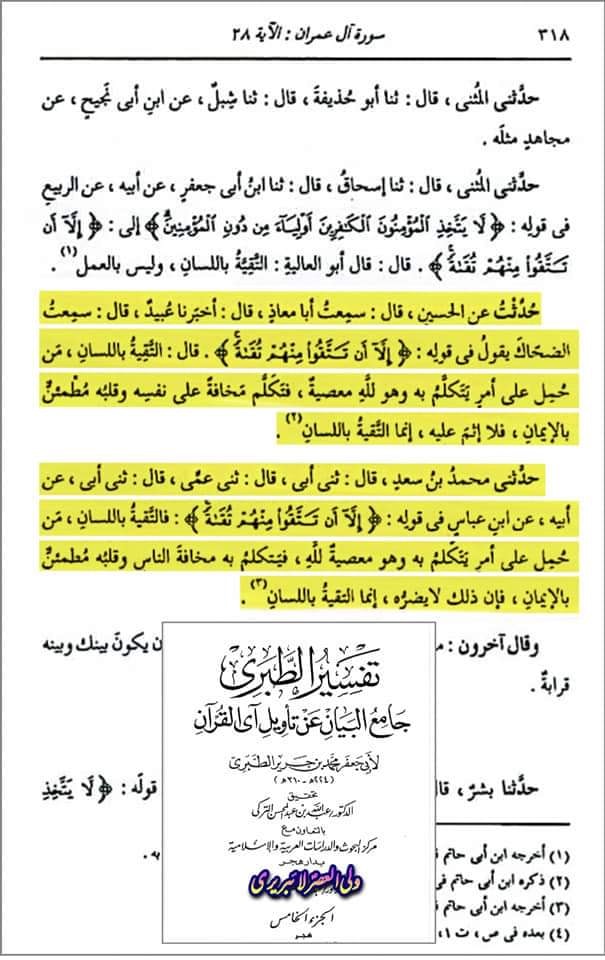 ٣١٨
سورة آل عمران : الآية ٢٨
حدَّثنى المُثنى ، قال : ثنا أبو حُذيفةَ ، قال : ثنا شِبلٌ ، عن ابنِ أبى نَجيحٍ ، عن
مجاهدٍ مثلَه .
حدَّثنى المُثنى ، قال : ثنا إسحاقُ ، قال : ثنا ابنُ أبى جعفرٍ ، عن أبيه ، عن الربيعِ
فى قولِه : ﴿ لَا يَتَّخِذِ الْمُؤْمِنُونَ الْكَافِرِينَ أَوْلِيَاءَ مِن دُونِ الْمُؤْمِنِينَ ﴾ إلى : ﴿ إِلَّا أَن
تَتَّقُوا مِنْهُمْ تُقَاةً ﴾ . قال : قال أبو العاليةِ : التَّقِيَّةُ باللسانِ ، وليس بالعملِ (١) .
حُدِّثْتُ عن الحسينِ ، قال : سمِعتُ أبا معاذٍ ، قال : أخبَرنا عُبيدٌ ، قال : سمِعتُ
الضحاكَ يقولُ فى قولِه : ﴿ إِلَّا أَن تَتَّقُوا مِنْهُمْ تُقَاةً ﴾ . قال : التَّقيةُ باللسانِ ، مَن
حُمِل على أمرٍ يَتكلَّمُ به وهو للَّهِ معصيةٌ ، فتَكلَّم مَخافةً على نفسِه وقلبُه مُطْمئنٌّ
بالإيمانِ ، فلا إثمَ عليه ، إنما التَّقيةُ باللسانِ (٢) .
حدَّثنى محمدُ بنُ سعدٍ ، قال : ثنى أبى ، قال : ثنى عمِّى ، قال : ثنى أبى ، عن
أبيه ، عن ابنِ عباسٍ فى قولِه : ﴿ إِلَّا أَن تَتَّقُوا مِنْهُمْ تُقَاةً ﴾ : فالتَّقيةُ باللسانِ ، مَن
حُمِل على أمرٍ يَتكلَّمُ به وهو معصيةٌ للَّهِ ، فيَتكلمُ به مخافةَ الناسِ وقلبُه مطمئنٌّ
بالإيمانِ ، فإن ذلك لايضرُّه ، إنما التقيةُ باللسانِ (٣) .
وقال آخرون :
ن يكونَ بينك وبينه
قرابةٌ .
حدَّثنا بشرٌ ، قال
قولَه : ﴿ لَا يَتَّخِذِ
(١) أخرجه ابن أبى حاتم
به .
(٢) ذكره ابن أبى حاتم فى
(٣) أخرجه ابن أبى حاتم
(٤) بعده فى ص ، ت ١ ،
تفسير الطبرى
جامع البيان عن تأويل آى القرآن
لأبى جعفر محمد بن جرير الطبرى
( ٢٢٤هـ - ٣١٠هـ )
تحقيق
الدكتور عبد الله بن عبد المحسن التركى
بالتعاون مع
مركز البحوث والدراسات العربية والإسلامية
بدار هجر
ولى العصر لائبريرى
الجزء الخامس
هجر